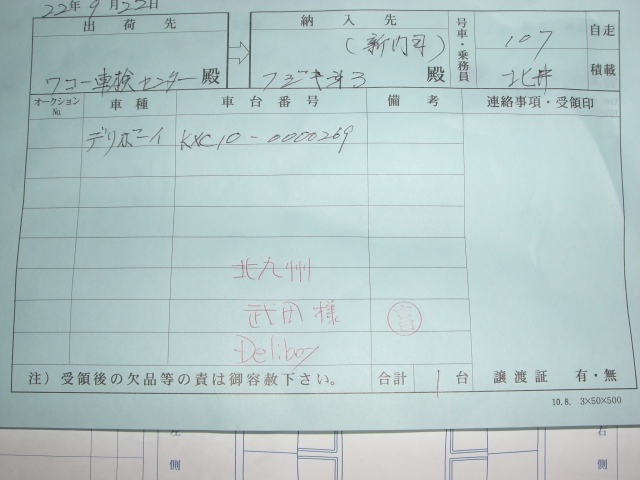 22年9月22日
出荷先
納入先
号車・乗務員
自走
107
(新内可)
ワコー車検センター殿
フジキ 殿
北井
積載
オークションNo.
車種
車台番号
備考
連絡事項・受領印
デリボーイ KXC10-0000269
北九州
武田様
Deliboy
注)受領後の欠品等の責は御容赦下さい。
合計 1台
譲渡証 有・無
10.8. 3×50×500
左側
右側